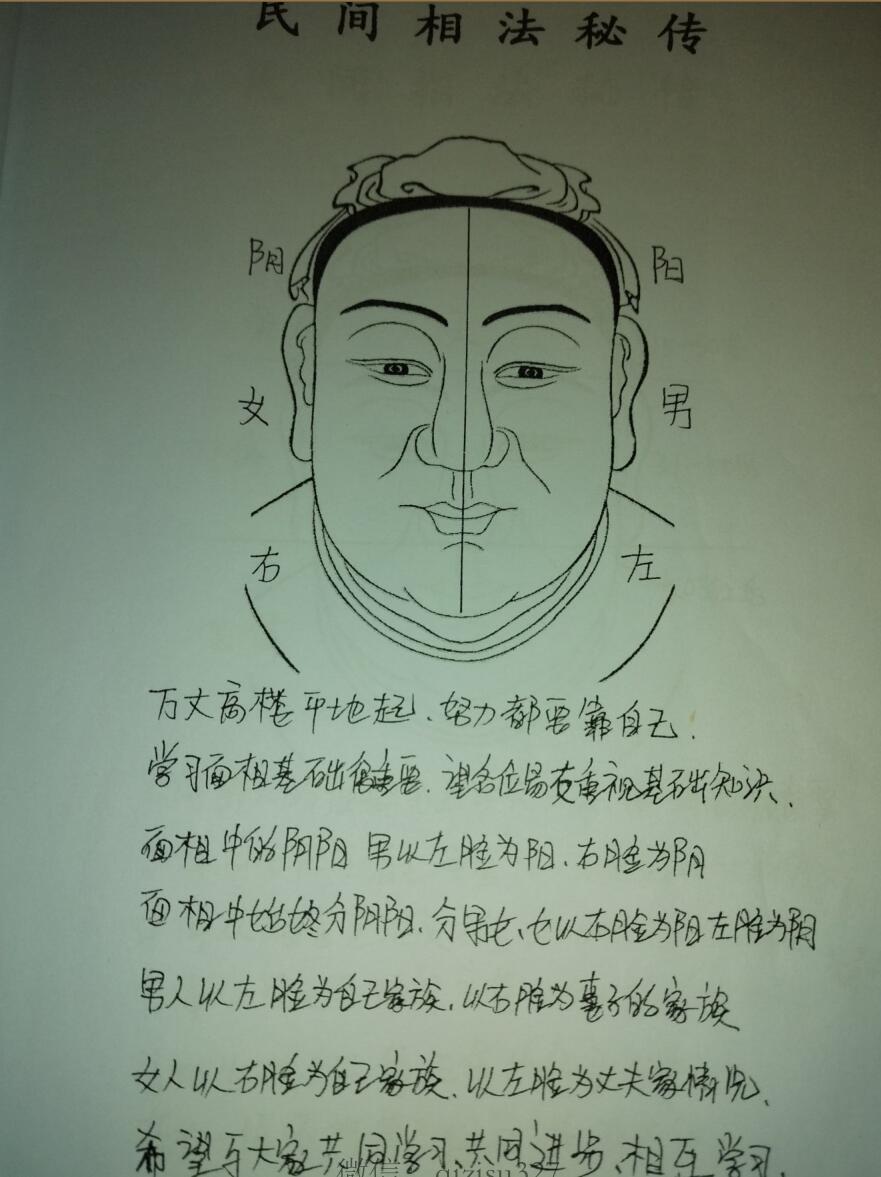 民间相法秘传
阴 阳
女 男
右 左
万丈高楼平地起、努力都要靠自己.
学习面相基础很重要、望各位易友重视基础知识、
面相中的阴阳 男以左脸为阳、右脸为阴
面相中始终分阴阳、分男女、女以右脸为阳左脸为阴
男人以左脸为自己家族、以右脸为妻子的家族
女人以右脸为自己家族、以左脸为丈夫家情况、
希望与大家共同学习、共同进步、相互学习、
微信